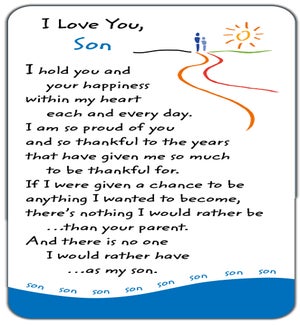 I Love You,
Son
I hold you and
your happiness
within my heart
each and every day.
I am so proud of you
and so thankful to the years
that have given me so much
to be thankful for.
If I were given a chance to be
anything I wanted to become,
there's nothing I would rather be
...than your parent.
And there is no one
I would rather have
...as my son.
son son son son son son son son